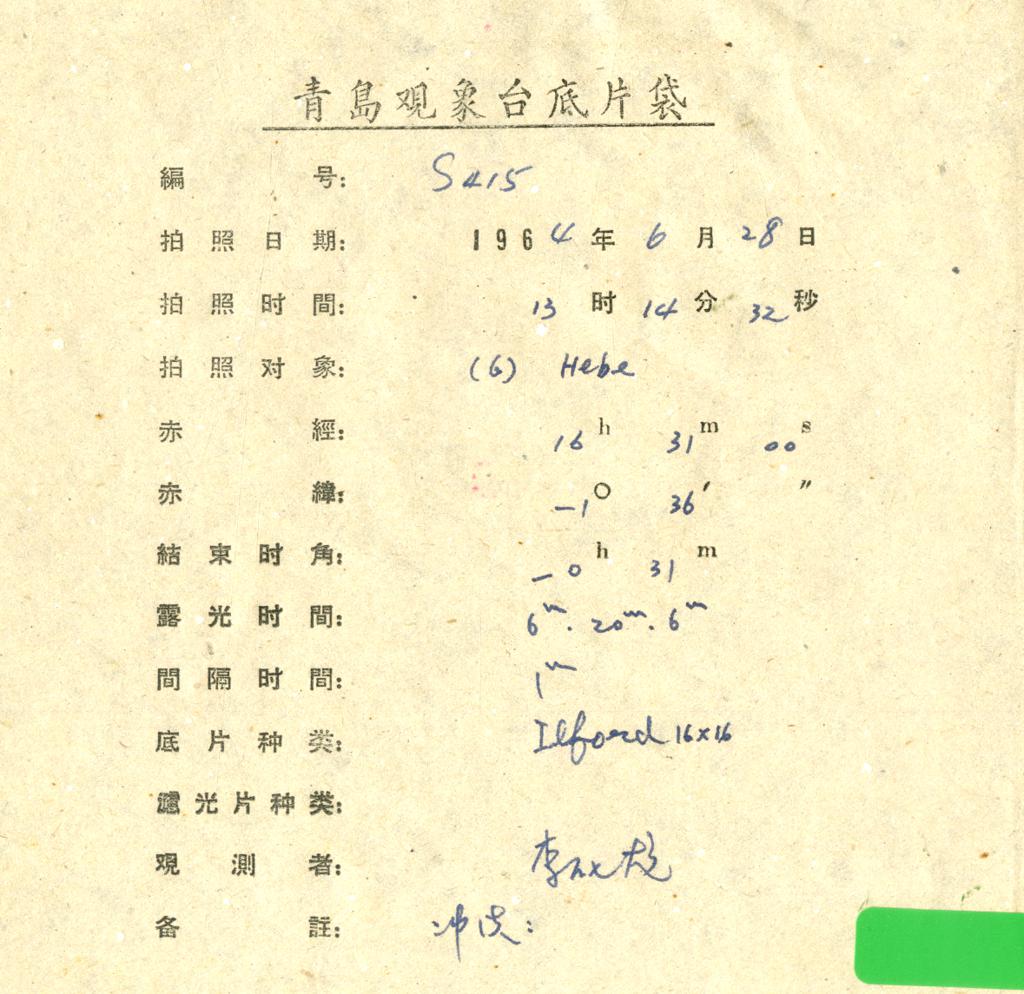 青島观象台底片袋
編号: S415
拍照日期: 1964年6月28日
拍照时間: 13时14分32秒
拍照对象: (6) Hebe
赤經: 16h 31m 00s
赤緯: -1° 36′ ″
結束时角: -0h 31m
露光时間: 6m. 20m. 6m
間隔时間: 1m
底片种类: Ilford 16×16
濾光片种类:
观測者: 李
备註: 冲洗: